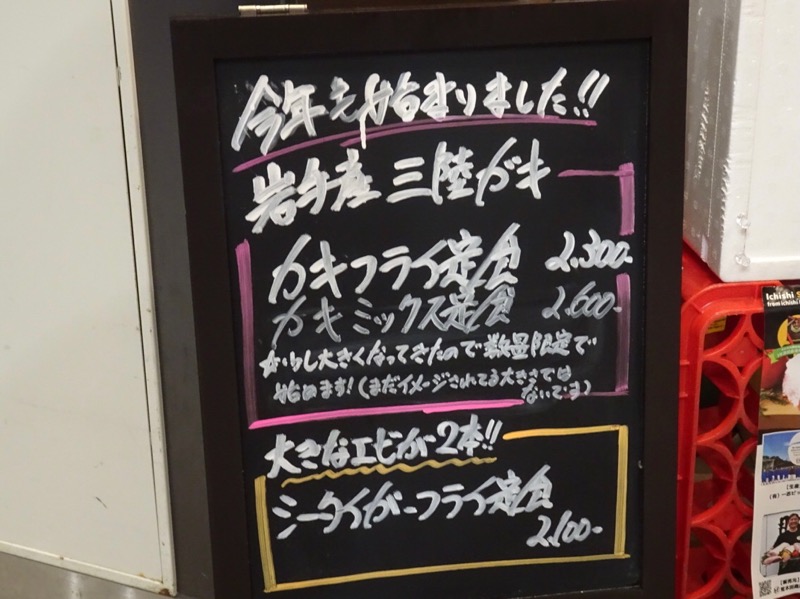 今年も始まりました!!
岩手産 三陸ガキ
カキフライ定食 2,300-
カキミックス定食 2,600-
少し大きくなってきたので数量限定で
始めます!(まだイメージされてる大きさでは
ないです)
大きなエビが2本!!
シータイガーフライ定食
2,100-
Ichishi
from ichishi